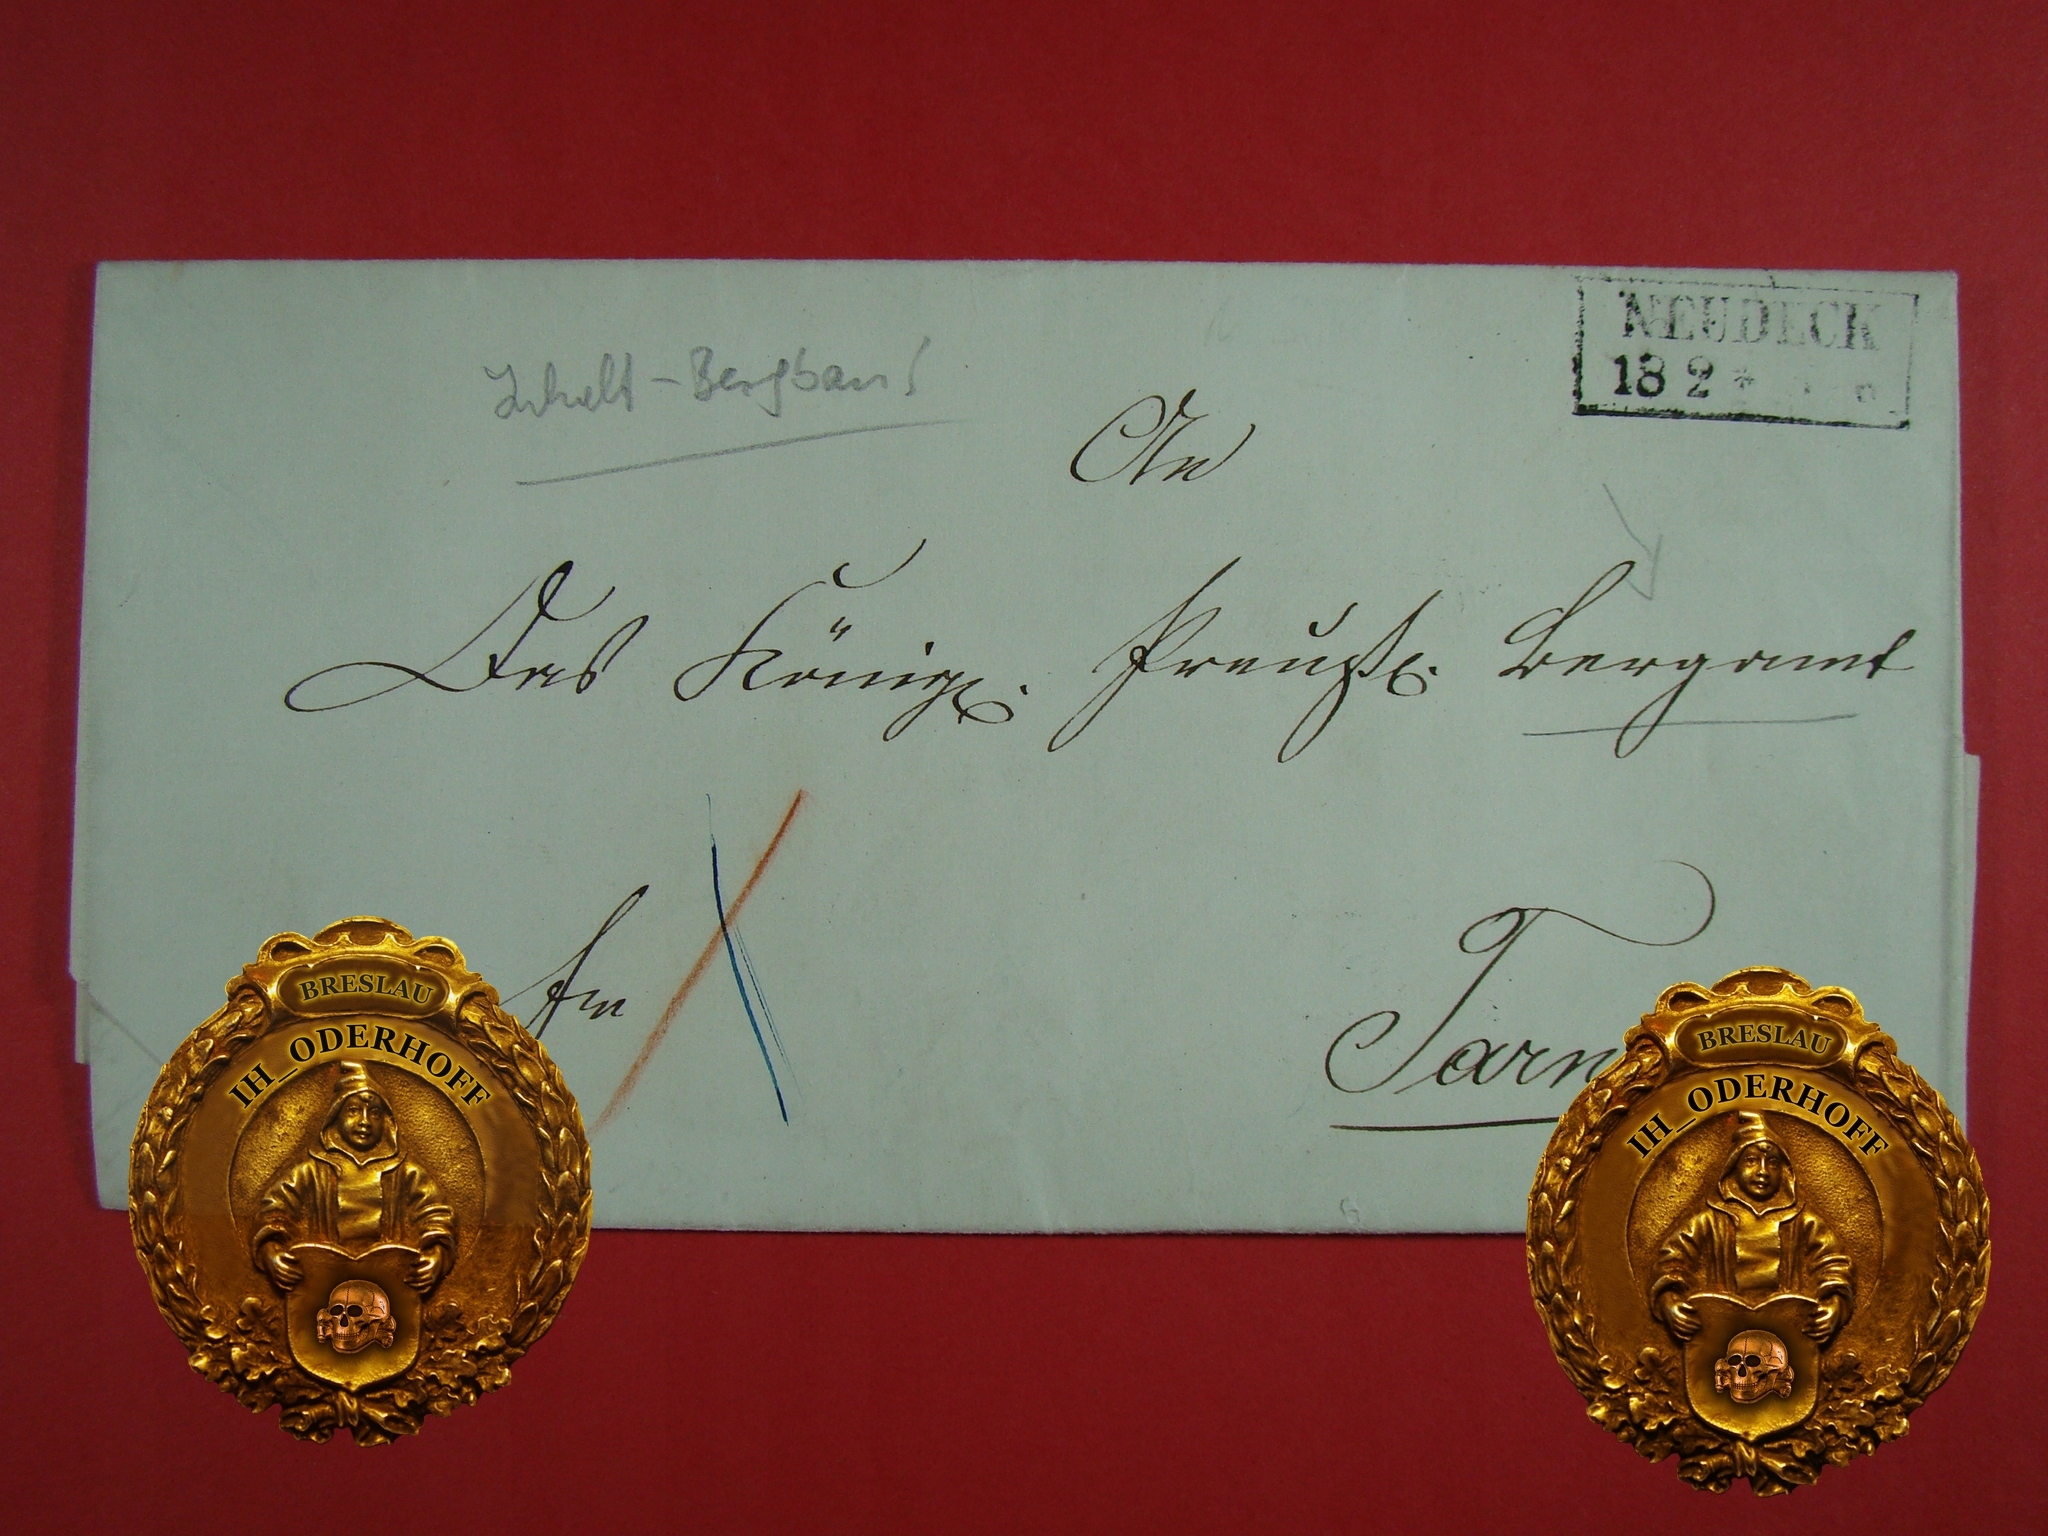 NEUDECK
18 2 *
Inhalt - Bergbau!
An
Das Königl. Preuß. Bergamt
Tarn
BRESLAU
IH_ODERHOFF
BRESLAU
IH_ODERHOFF